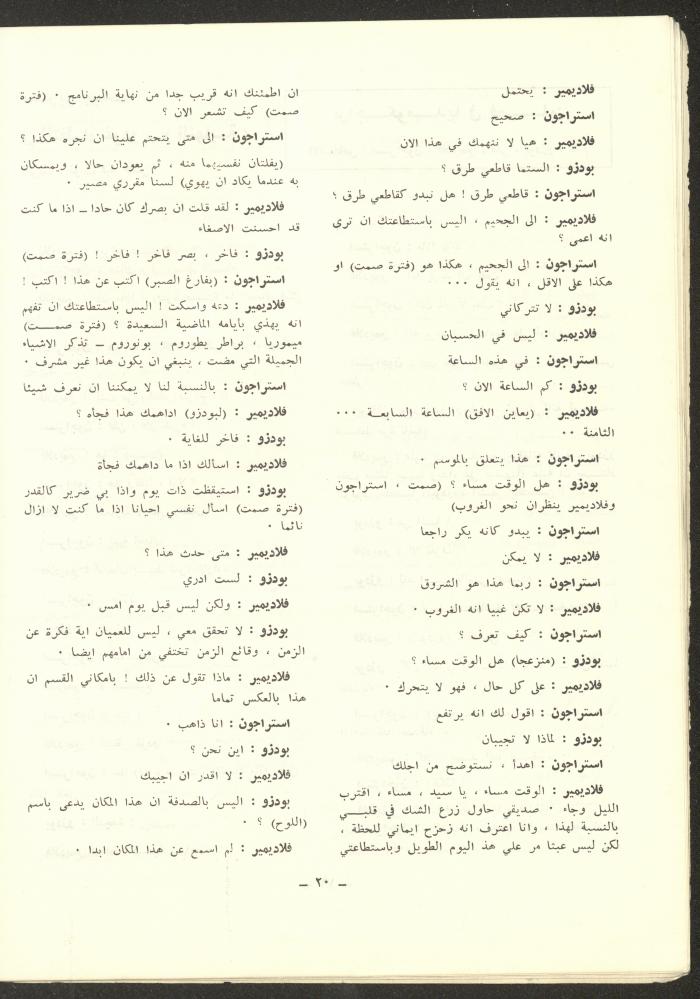 فلاديمير : يحتمل
استراجون : صحيح
فلاديمير : هيا لا نتهمك في هذا الان
بودزو : الستما قاطعي طرق ؟
استراجون : قاطعي طرق ! هل نبدو كقاطعي طرق ؟
فلاديمير : الى الجحيم ، اليس باستطاعتك ان ترى
انه اعمى ؟
استراجون : الى الجحيم ، هكذا هو (فترة صمت) او
هكذا على الاقل ، انه يقول ٠٠٠
بودزو : لا تتركاني
فلاديمير : ليس في الحسبان
استراجون : في هذه الساعة
بودزو : كم الساعة الان ؟
فلاديمير : (يعاين الافق) الساعة السابعـة ٠٠٠
الثامنة ٠٠
استراجون : هذا يتعلق بالموسم ٠
بودزو : هل الوقت مساء ؟ (صمت ، استراجون
وفلاديمير ينظران نحو الغروب)
استراجون : يبدو كانه يكر راجعا
فلاديمير : لا يمكن
استراجون : ربما هذا هو الشروق
فلاديمير : لا تكن غبيا انه الغروب ٠
استراجون : كيف تعرف ؟
بودزو : (منزعجا) هل الوقت مساء ؟
فلاديمير : على كل حال ، فهو لا يتحرك ٠
استراجون : اقول لك انه يرتفع
بودزو : لماذا لا تجيبان
استراجون : اهدأ ، نستوضح من اجلك
فلاديمير : الوقت مساء ، يا سيد ، مساء ، اقترب
الليل وجاء ٠ صديقي حاول زرع الشك في قلبـــي
بالنسبة لهذا ، وانا اعترف انه زحزح ايماني للحظة ،
لكن ليس عبثا مر علي هذ اليوم الطويل وباستطاعتي
ان اطمئنك انه قريب جدا من نهاية البرنامج ٠ (فترة
صمت) كيف تشعر الان ؟
استراجون : الى متى يتحتم علينا ان نجره هكذا ؟
(يفلتان نفسيهما منه ، ثم يعودان حالا ، ويمسكان
به عندما يكاد ان يهوي) لسنا مقرري مصير ٠
فلاديمير : لقد قلت ان بصرك كان حادا ــ اذا ما كنت
قد احسنت الاصغاء
بودزو : فاخر ، بصر فاخر ! فاخر ! (فترة صمت)
استراجون : (بفارغ الصبر) اكتب عن هذا ! اكتب !
فلاديمير : دعه واسكت ! اليس باستطاعتك ان تفهم
انه يهذي بايامه الماضية السعيدة ؟ (فترة صمـــت)
ميموريا ، براطر يطوروم ، بونوروم ــ تذكر الاشياء
الجميلة التي مضت ، ينبغي ان يكون هذا غير مشرف ٠
استراجون : بالنسبة لنا لا يمكننا ان نعرف شيئا
فلاديمير : (لبودزو) اداهمك هذا فجأه ؟
بودزو : فاخر للغاية ٠
فلاديمير : اسألك اذا ما داهمك فجأة
بودزو : استيقظت ذات يوم واذا بي ضرير كالقدر
(فترة صمت) اسأل نفسي احيانا اذا ما كنت لا ازال
نائما ٠
فلاديمير : متى حدث هذا ؟
بودزو : لست ادري
فلاديمير : ولكن ليس قبل يوم امس ٠
بودزو : لا تحقق معي ، ليس للعميان اية فكرة عن
الزمن ، وقائع الزمن تختفي من امامهم ايضا ٠
فلاديمير : ماذا تقول عن ذلك ! بامكاني القسم ان
هذا بالعكس تماما
استراجون : انا ذاهب ٠
بودزو : اين نحن ؟
فلاديمير : لا اقدر ان اجيبك
بودزو : اليس بالصدفة ان هذا المكان يدعى باسم
(اللوح) ؟ ٠
فلاديمير : لم اسمع عن هذا المكان ابدا ٠
ــ ٢٠ ــ